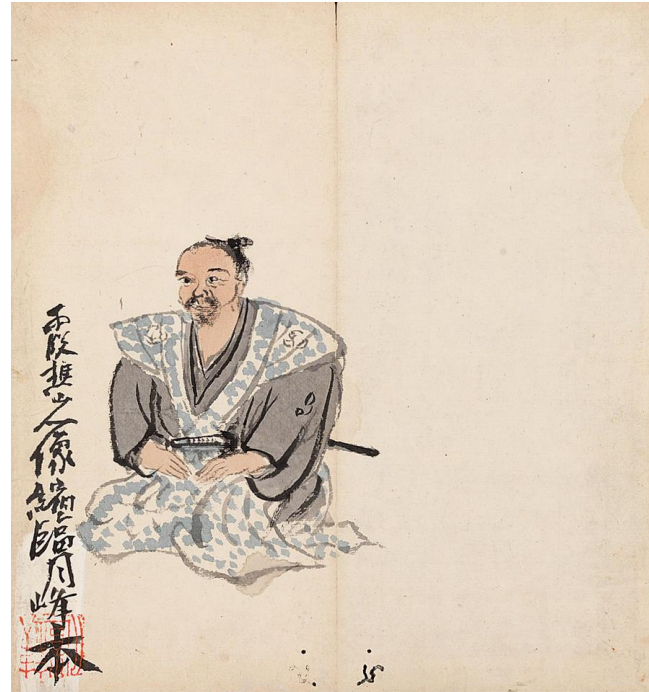 霞樵山人像縮臨月峰本